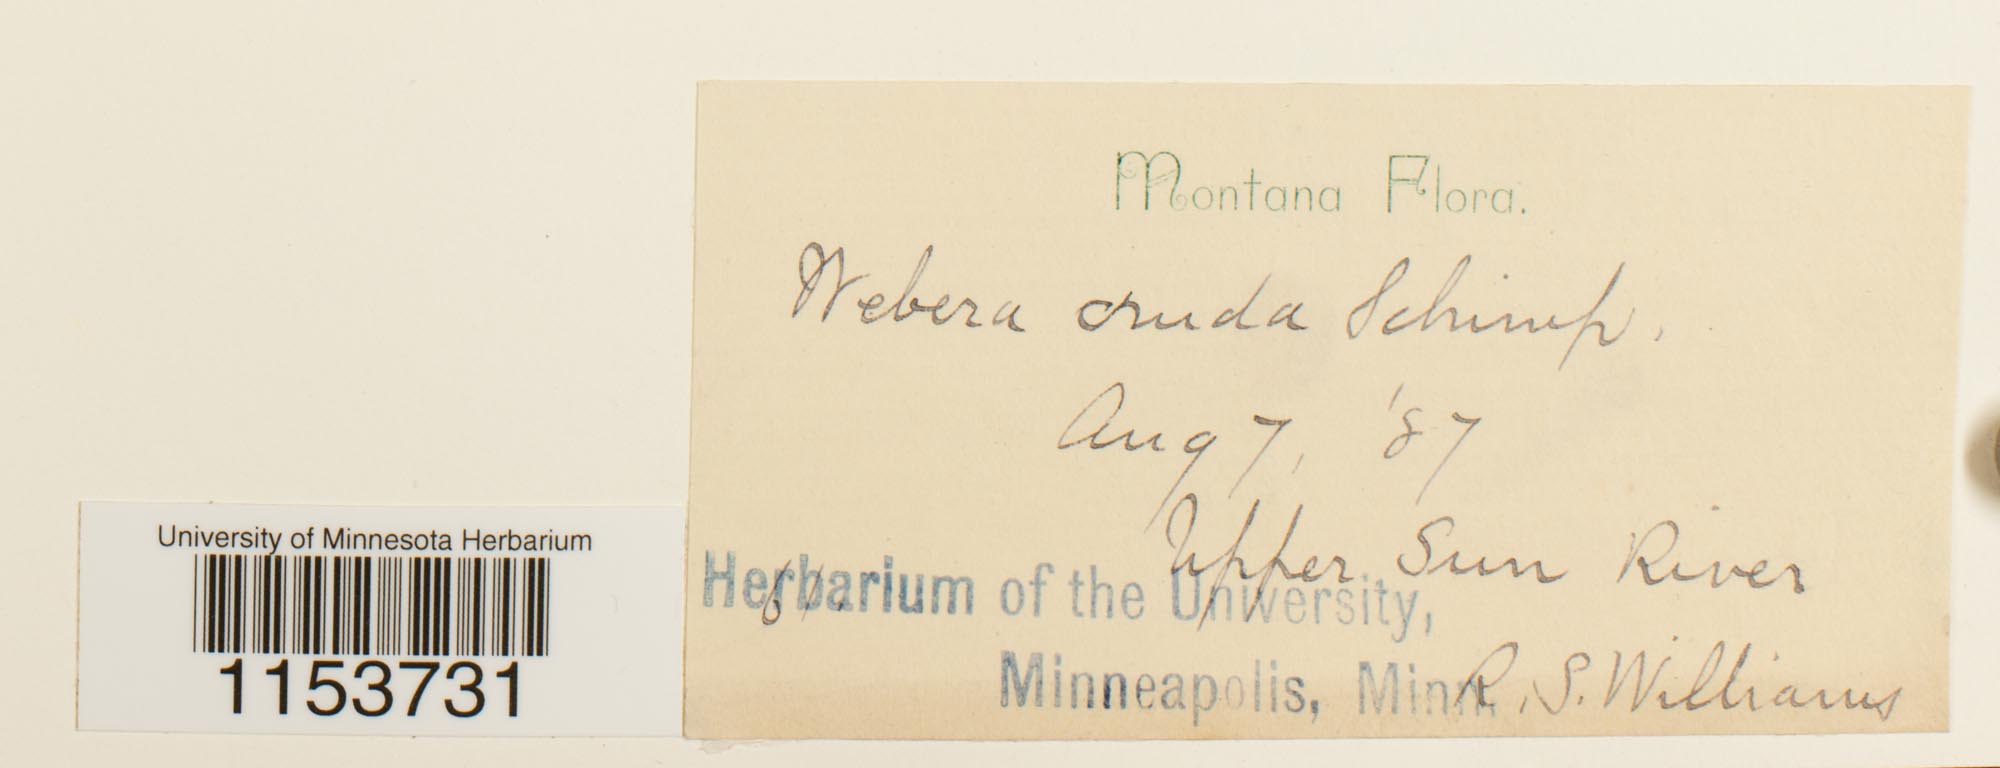 Montana Flora.
Webera cruda Schimp.
Aug 7, '87
Upper Sun River
61.
Herbarium of the University,
Minneapolis, Minn.
R. S. Williams
University of Minnesota Herbarium
1153731